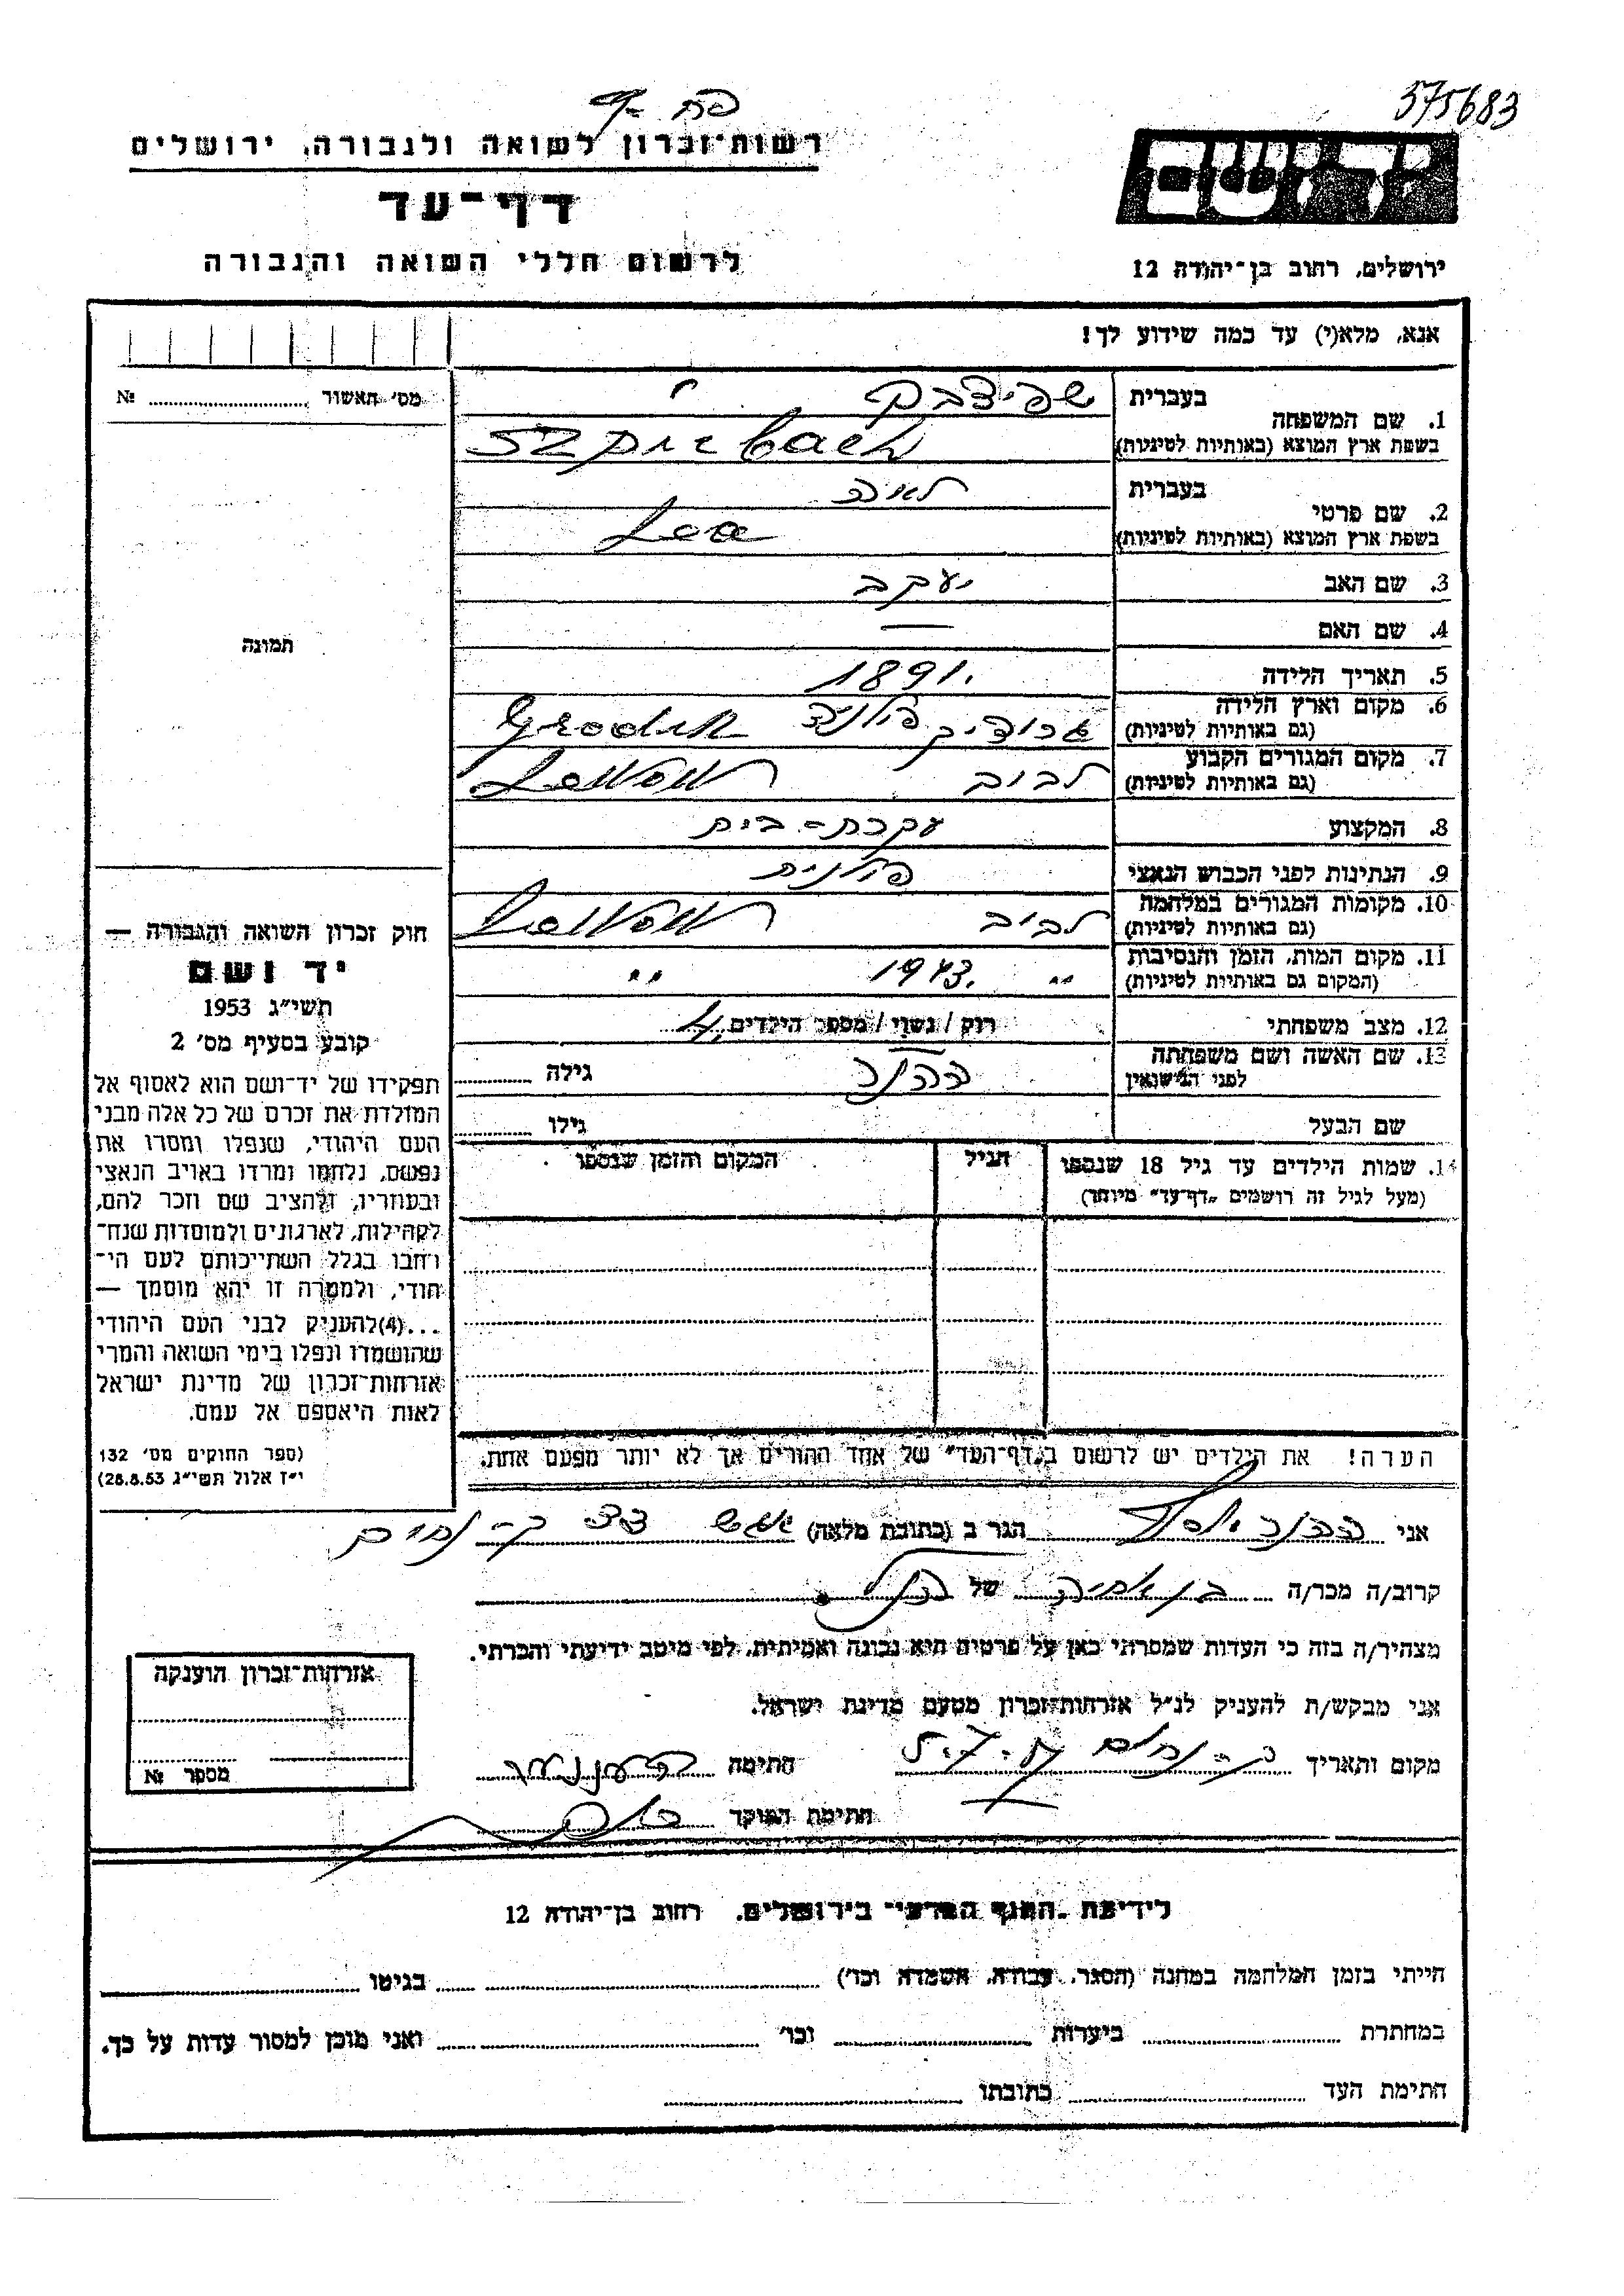 575683
רשות־זכרון לשואה ולגבורה, ירושלים
דף־עד
לרשום חללי השואה והגבורה
יד ושם
ירושלים, רחוב בן־יהודה 12
אנא, מלא(י) עד כמה שידוע לך!
מס׳ תאשור № 
1. שם המשפחה
בעברית
בשפת ארץ המוצא (באותיות לטיניות)
2. שם פרטי
בעברית לאה
בשפת ארץ המוצא (באותיות לטיניות) Lea
3. שם האב יעקב
4. שם האם —
5. תאריך הלידה 1891.
6. מקום וארץ הלידה
(גם באותיות לטיניות)
גרודיק פולניה Grodek
7. מקום המגורים הקבוע
(גם באותיות לטיניות)
לבוב
8. המקצוע עקרת־בית
9. הנתינות לפני הכבוש הנאצי פולנית
10. מקומות המגורים במלחמה
(גם באותיות לטיניות)
לבוב
11. מקום המות, הזמן והנסיבות
(המקום גם באותיות לטיניות)
״ 1943. ״
12. מצב משפחתי רוק / נשוי / מספר הילדים 4
13. שם האשה ושם משפחתה
לפני הנישואין
גילה
שם הבעל גילו
14. שמות הילדים עד גיל 18 שנספו
(מעל לגיל זה רושמים „דף־עד״ מיוחד)
הגיל
המקום והזמן שנספו
הערה! את הילדים יש לרשום ב„דף־העד״ של אחד ההורים אך לא יותר מפעם אחת.
תמונה
חוק זכרון השואה והגבורה —
יד ושם
תשי״ג 1953
קובע בסעיף מס׳ 2
תפקידו של יד־ושם הוא לאסוף אל
המולדת את זכרם של כל אלה מבני
העם היהודי, שנפלו ומסרו את
נפשם, נלחמו ומרדו באויב הנאצי
ובעוזריו, ולהציב שם וזכר להם,
לקהילות, לארגונים ולמוסדות שנח־
רחבו בגלל השתייכותם לעם הי־
הודי, ולמטרה זו יהא מוסמך —
...(4)להעניק לבני העם היהודי
שהושמדו ונפלו בימי השואה והמרי
אזרחות־זכרון של מדינת ישראל
לאות היאספם אל עמם.
(ספר החוקים מס׳ 132
י״ז אלול תשי״ג 28.8.53)
אני הגר ב (כתובת מלאה)
קרוב/ה מכר/ה של
מצהיר/ה בזה כי העדות שמסרתי כאן על פרטיה היא נכונה ואמיתית, לפי מיטב ידיעתי והכרתי.
אני מבקש/ת להעניק לנ״ל אזרחות־זכרון מטעם מדינת ישראל.
מקום ותאריך חתימה
חתימת הפוקד
אזרחות־זכרון הוענקה
מספר №
לידיעת הסניף המדעי בירושלים, רחוב בן־יהודה 12
הייתי בזמן המלחמה במחנה (הסגר, עבודה, השמדה וכו׳) בגיטו
במחתרת ביערות וכו׳ ואני מוכן למסור עדות על כך.
חתימת העד כתובתו